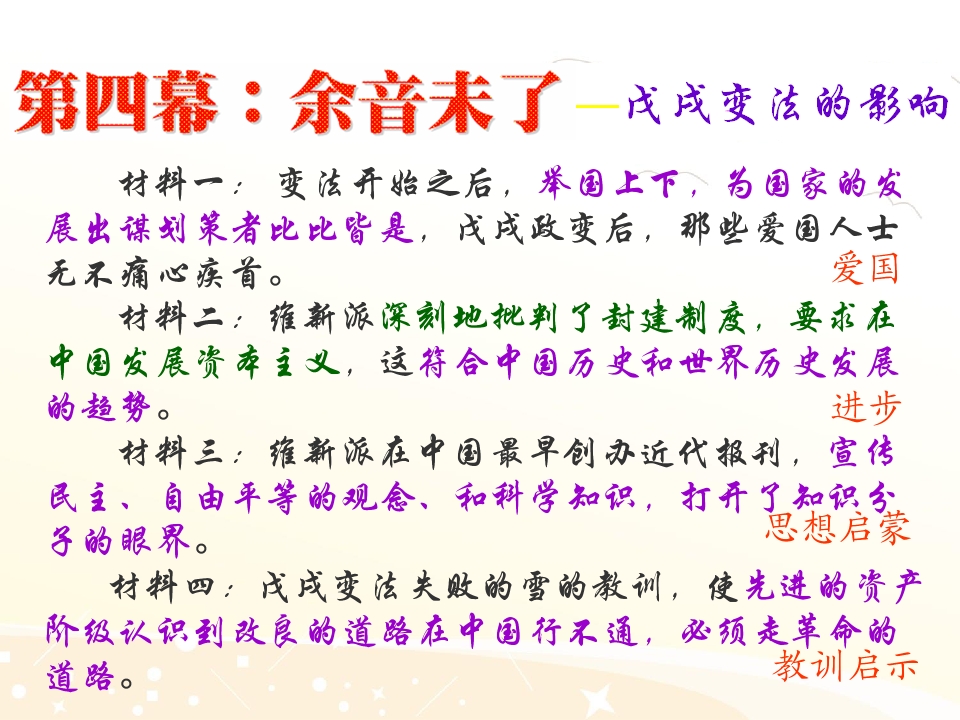 第四幕：余音未了—戊戌变法的影响
材料一： 变法开始之后，举国上下，为国家的发
展出谋划策者比比皆是，戊戌政变后，那些爱国人士
无不痛心疾首。
爱国
材料二：维新派深刻地批判了封建制度，要求在
中国发展资本主义，这符合中国历史和世界历史发展
的趋势。
进步
材料三：维新派在中国最早创办近代报刊，宣传
民主、自由平等的观念、和科学知识，打开了知识分
子的眼界。
思想启蒙
材料四：戊戌变法失败的雪的教训，使先进的资产
阶级认识到改良的道路在中国行不通，必须走革命的
道路。
教训启示